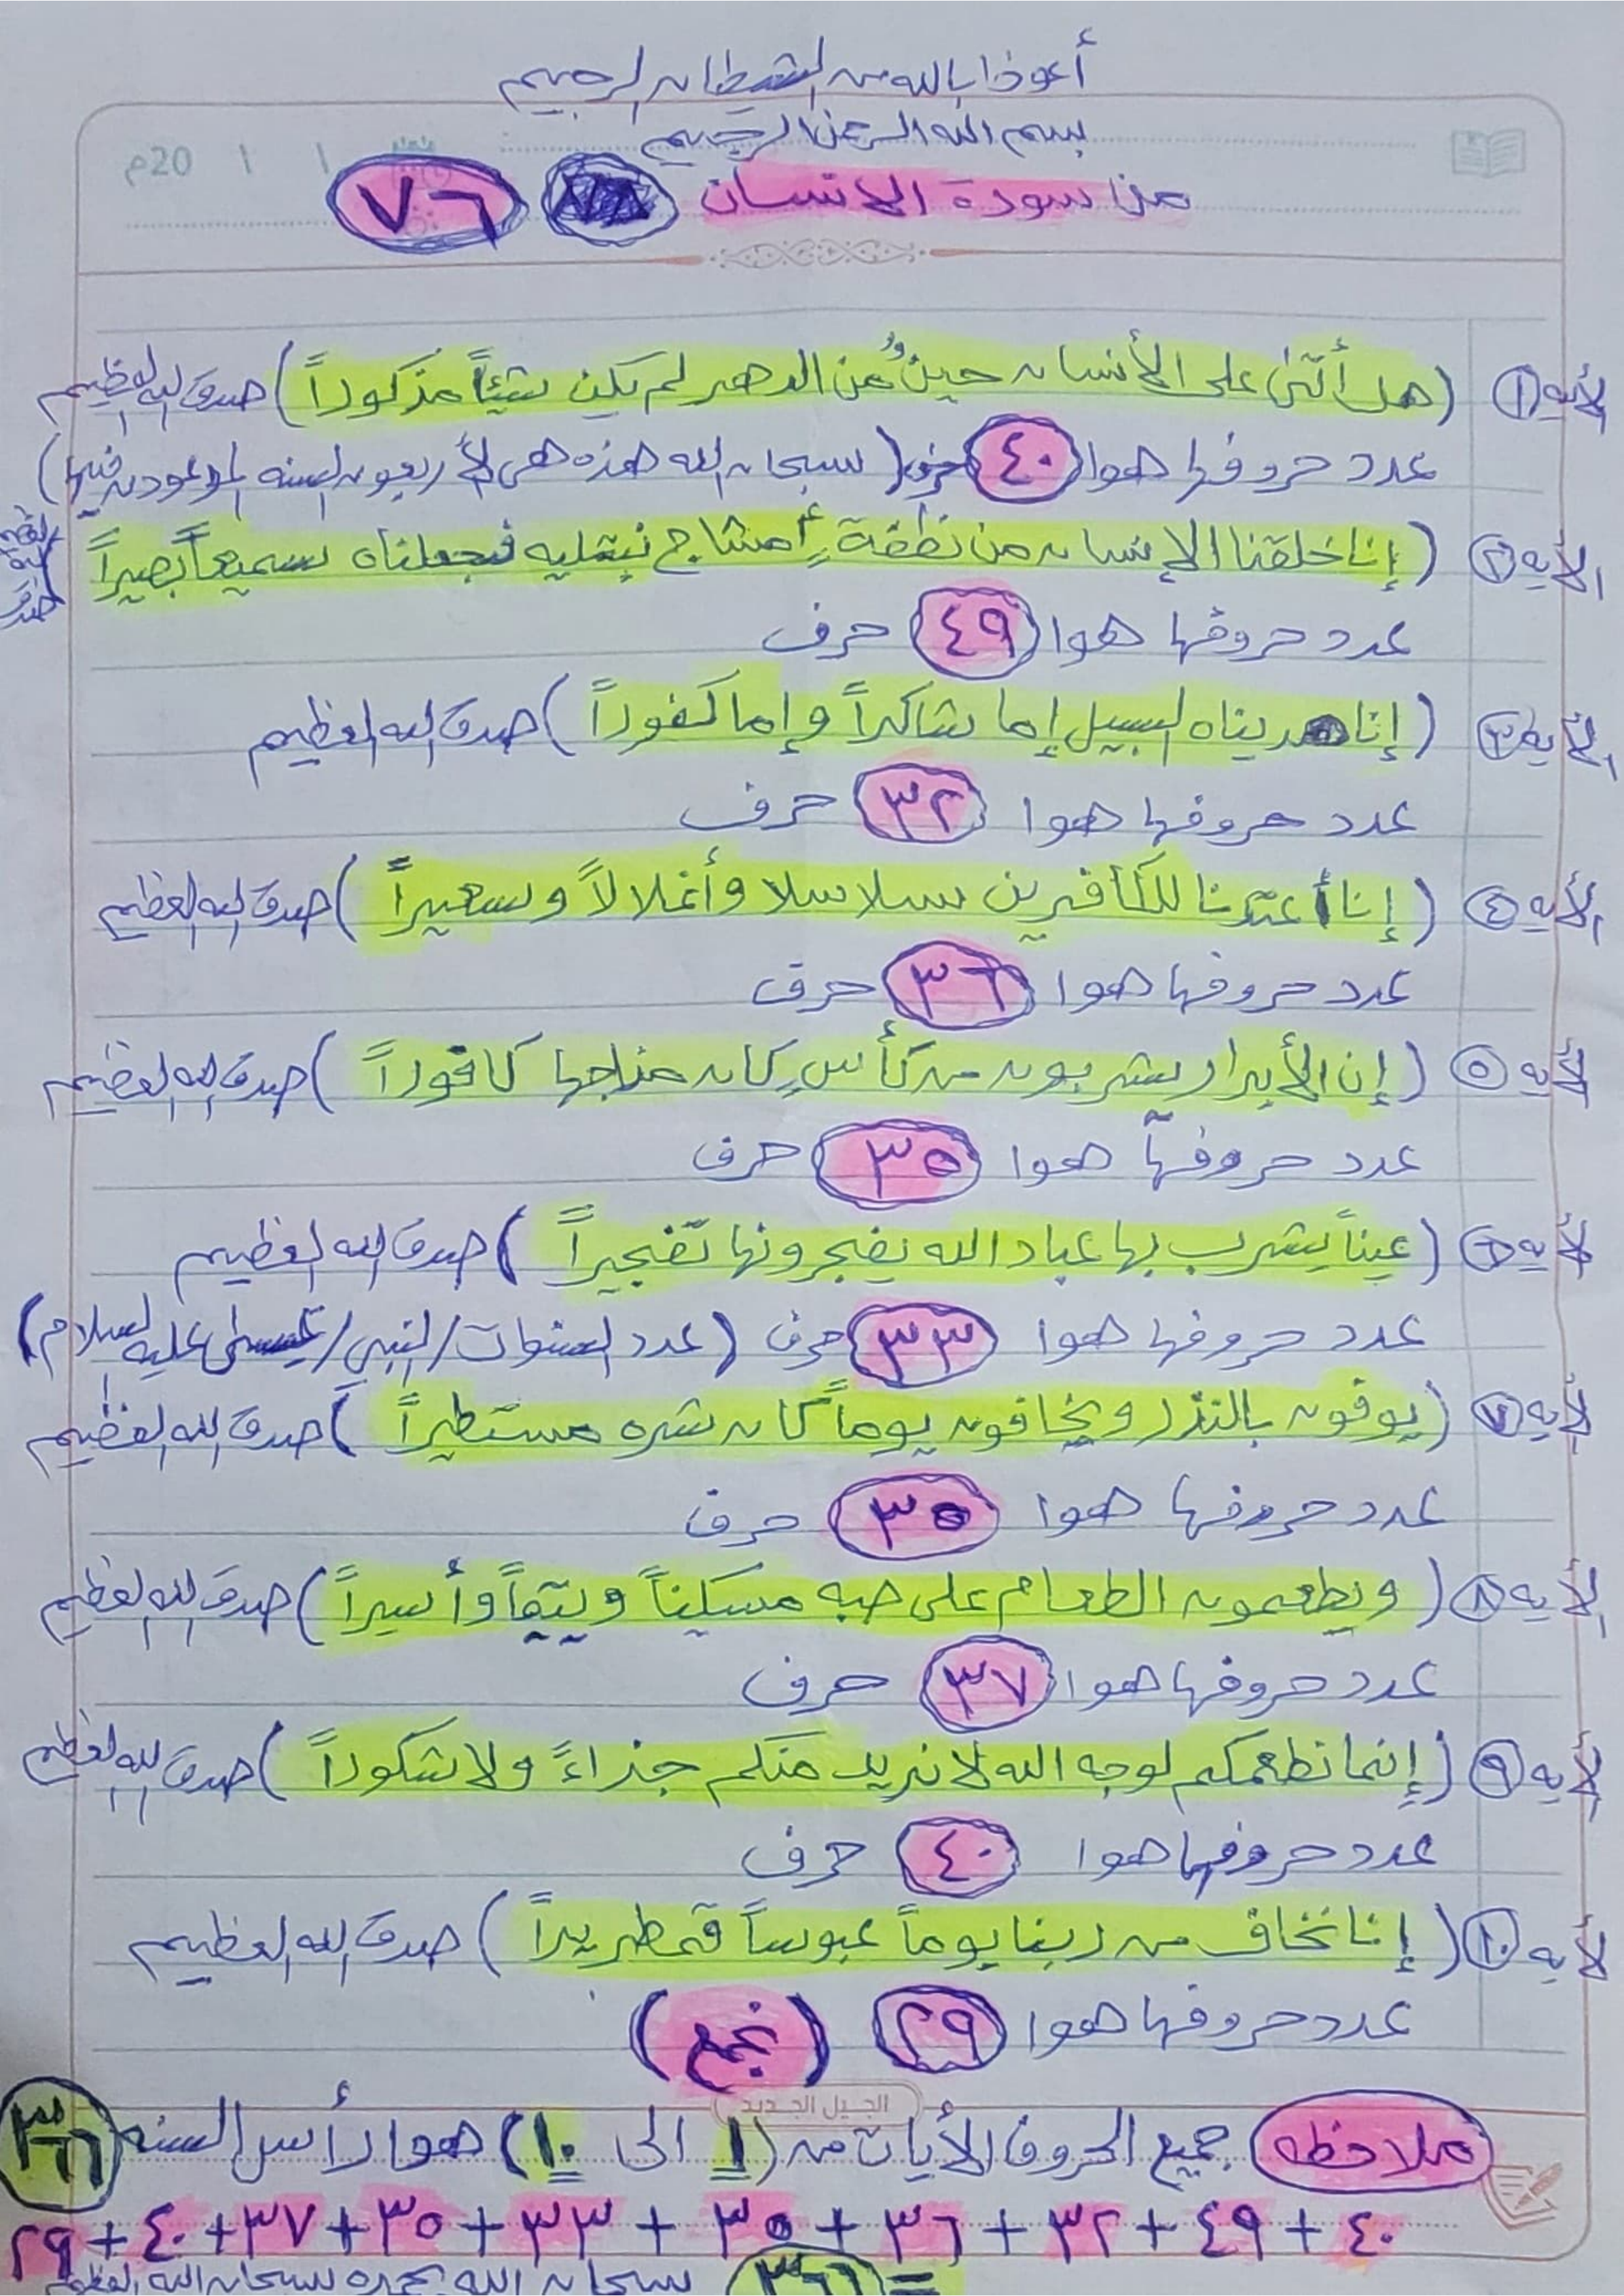 أعوذ بالله من الشيطان الرجيم
بسم الله الرحمن الرحيم
م 20 / /
من سورة الإنسان ٧٦
الأيه ١ (هل أتىٰ على الأنسان حينٌ من الدهر لم يكن شيئاً مذكوراً) صدق الله العظيم
عدد حروفها هوا ٤٠ حرف (سبحان الله هذه هي الأربعون السنه الموعودين فيها)
الأيه ٢ (إنا خلقنا الإنسان من نطفةٍ أمشاج نبتليه فجعلناه سميعاً بصيراً) صدق الله العظيم
عدد حروفها هوا ٤٩ حرف
الأيه ٣ (إنا هديناه السبيل إما شاكراً وإما كفوراً) صدق الله العظيم
عدد حروفها هوا ٣٢ حرف
الأيه ٤ (إنا أعتدنا للكافرين سلاسلا وأغلالاً وسعيراً) صدق الله العظيم
عدد حروفها هوا ٣٦ حرف
الأيه ٥ (إن الأبرار يشربون من كأسٍ كان مزاجها كافوراً) صدق الله العظيم
عدد حروفها هوا ٣٥ حرف
الأيه ٦ (عيناً يشرب بها عباد الله يفجرونها تفجيراً) صدق الله العظيم
عدد حروفها هوا ٣٣ حرف (عدد السنوات/النبي/عيسىٰ عليه السلام)
الأيه ٧ (يوفون بالنذر ويخافون يوماً كان شره مستطيراً) صدق الله العظيم
عدد حروفها هوا ٣٥ حرف
الأيه ٨ (ويطعمون الطعام على حبه مسكيناً ويتيماً وأسيراً) صدق الله العظيم
عدد حروفها هوا ٣٧ حرف
الأيه ٩ (إنما نطعمكم لوجه الله لا نريد منكم جزاءً ولا شكوراً) صدق الله العظيم
عدد حروفها هوا ٤٠ حرف
الأيه ١٠ (إنا نخاف من ربنا يوماً عبوساً قمطريراً) صدق الله العظيم
عدد حروفها هوا ٢٩ (نجمع)
الجيل الجديد
ملاحظه جميع الحروف الأيات من (١ الى ١٠) هوا رأس السنه ٣٦٦
٤٠ + ٤٩ + ٣٢ + ٣٦ + ٣٥ + ٣٣ + ٣٥ + ٣٧ + ٤٠ + ٢٩
= ٣٦٦ سبحان الله بحمده سبحان الله العظيم